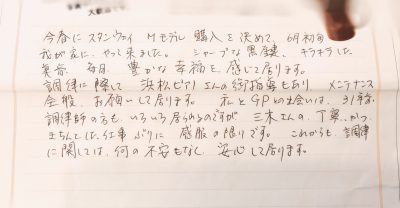 今春に スタンウェイ Mモデル 購入を決めて、6月初旬
我が家に、やって来ました。 シャープな黒鍵、キラキラした
美音、毎日、豊かな幸福を感じて居ります。
調律に際して 浜松ピアノさんの御指導もあり、メンテナンス
全般、お願いして居ります。 私とGPの出会いは、31年前、
調律師の方も、いろいろ居られるのですが 三木さんの、丁寧、かつ、
きちんとした仕事ぶりに 感服の限りです。 これからも、調律
に関しては、何の不安もなく、安心して居ります。